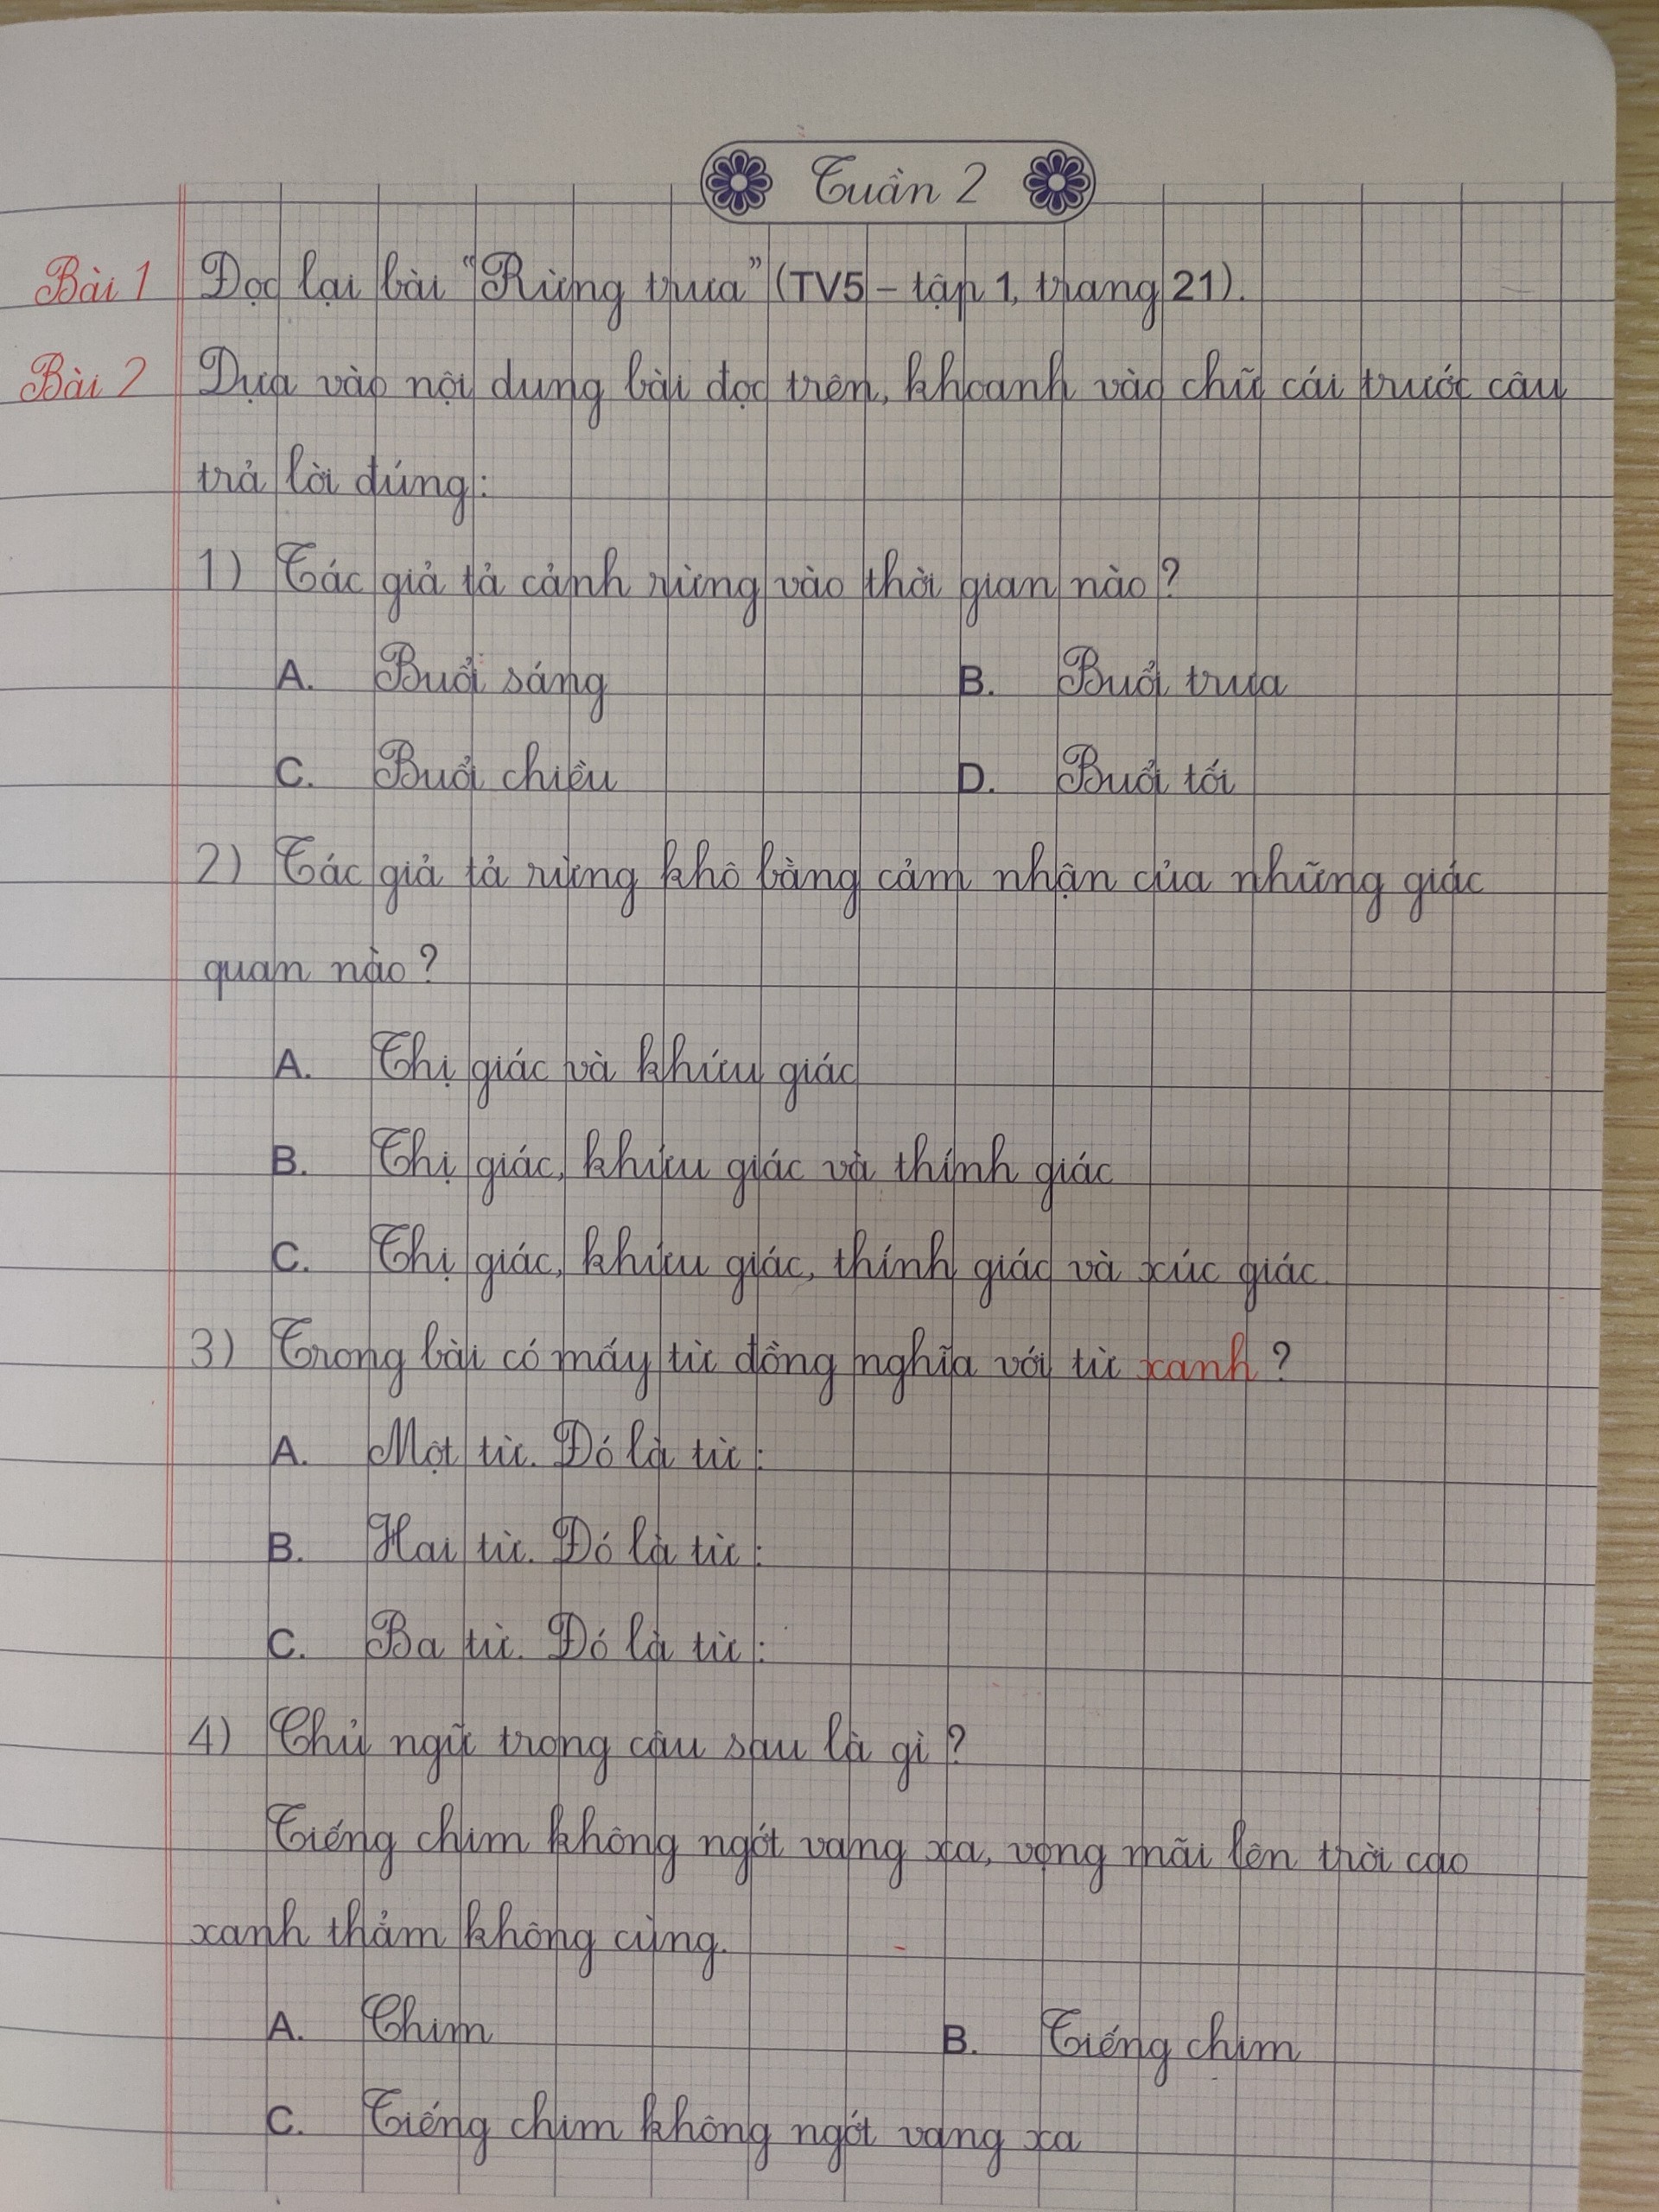 Tuần 2
Bài 1 Đọc lại bài "Rừng trưa" (TV5 – tập 1, trang 21).
Bài 2 Dựa vào nội dung bài đọc trên, khoanh vào chữ cái trước câu
trả lời đúng:
1) Tác giả tả cảnh rừng vào thời gian nào?
A. Buổi sáng B. Buổi trưa
C. Buổi chiều D. Buổi tối
2) Tác giả tả rừng khô bằng cảm nhận của những giác
quan nào?
A. Thị giác và khứu giác
B. Thị giác, khứu giác và thính giác
C. Thị giác, khứu giác, thính giác và xúc giác.
3) Trong bài có mấy từ đồng nghĩa với từ xanh?
A. Một từ. Đó là từ:
B. Hai từ. Đó là từ:
C. Ba từ. Đó là từ:
4) Chủ ngữ trong câu sau là gì?
Tiếng chim không ngớt vang xa, vọng mãi lên trời cao
xanh thẳm không cùng.
A. Chim B. Tiếng chim
C. Tiếng chim không ngớt vang xa